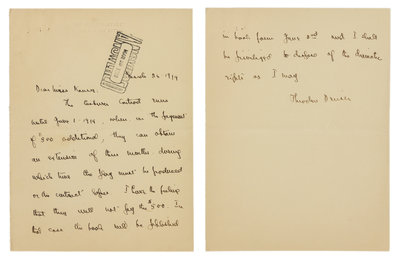 March 26 1914
Dear Miss
The Anderson Contract runs
until June 1 - 1914, when, on the payment
of $500 additional, they can obtain
an extension of three months during
which time the play must be produced
or the contract lapses. I have the feeling
that they will not pay the $500. In
that case the book will be published
in book form June 2nd and I shall
be privileged to dispose of the dramatic
rights as I may.
Theodore Dreiser